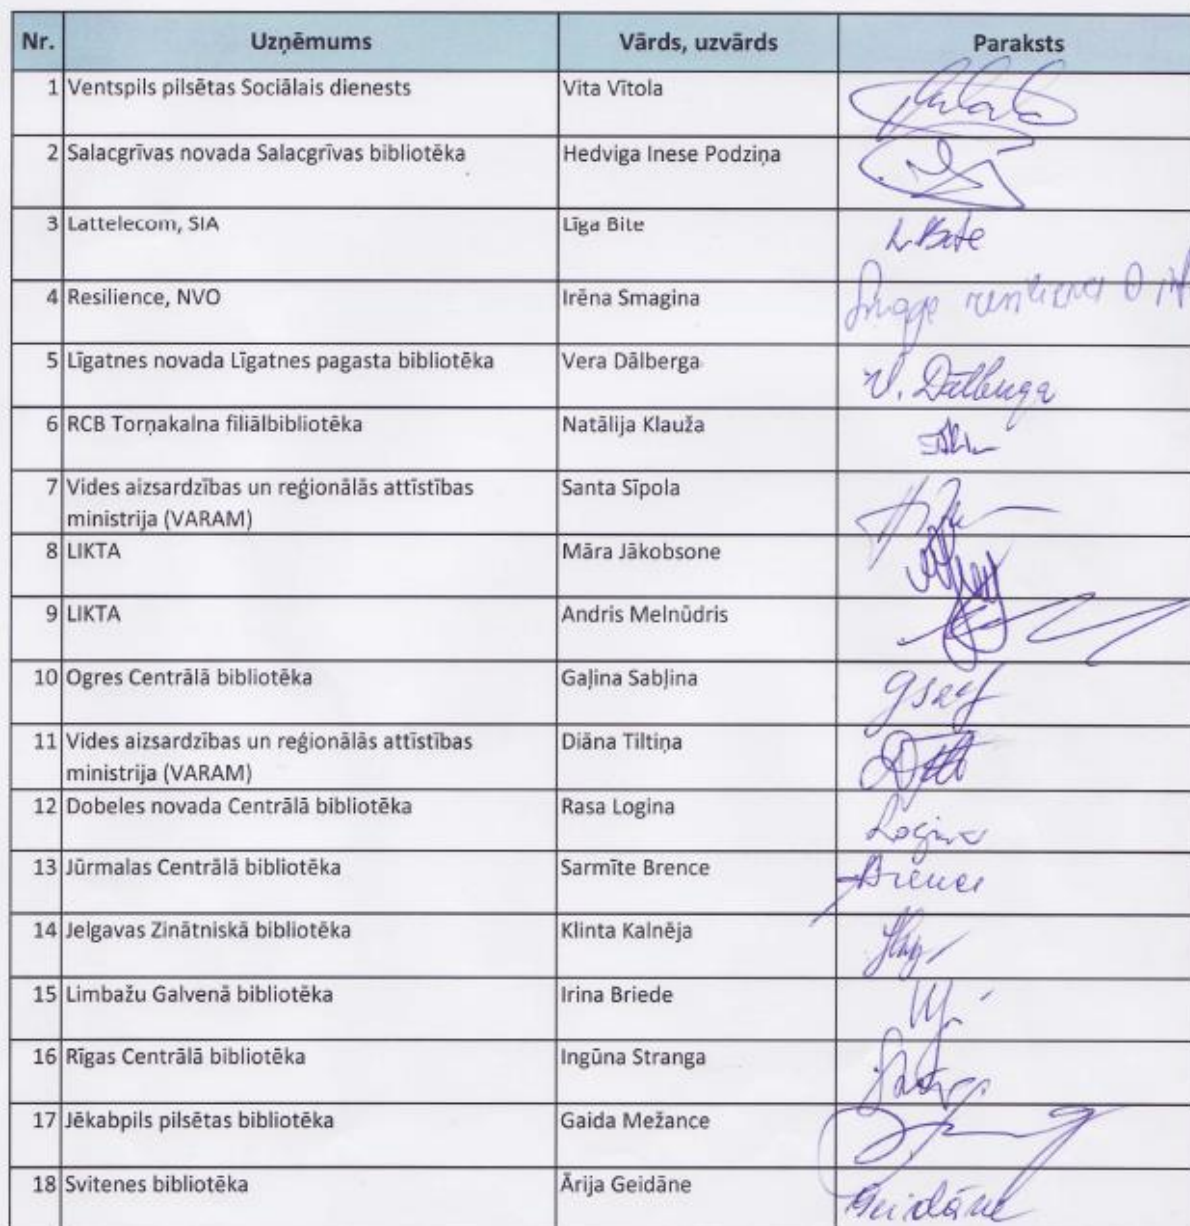 Nr. Uzņēmums Vārds, uzvārds Paraksts
1 Ventspils pilsētas Sociālais dienests Vita Vītola
2 Salacgrīvas novada Salacgrīvas bibliotēka Hedviga Inese Podziņa
3 Lattelecom, SIA Līga Bite L Bite
4 Resilience, NVO Irēna Smagina
5 Līgatnes novada Līgatnes pagasta bibliotēka Vera Dālberga V. Dālberga
6 RCB Torņakalna filiālbibliotēka Natālija Klauža
7 Vides aizsardzības un reģionālās attīstības Santa Sīpola
ministrija (VARAM)
8 LIKTA Māra Jākobsone
9 LIKTA Andris Melnūdris
10 Ogres Centrālā bibliotēka Gaļina Sabļina
11 Vides aizsardzības un reģionālās attīstības Diāna Tiltiņa
ministrija (VARAM)
12 Dobeles novada Centrālā bibliotēka Rasa Logina Logina
13 Jūrmalas Centrālā bibliotēka Sarmīte Brence Brence
14 Jelgavas Zinātniskā bibliotēka Klinta Kalnēja
15 Limbažu Galvenā bibliotēka Irina Briede
16 Rīgas Centrālā bibliotēka Ingūna Stranga
17 Jēkabpils pilsētas bibliotēka Gaida Mežance
18 Svitenes bibliotēka Ārija Geidāne Geidāne